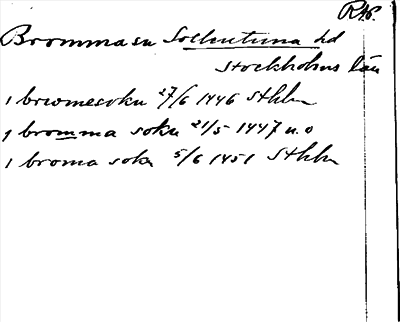 RAP.
Bromma sn Sollentuna hd
Stockholms län
i brwmesoku 27/6 1446 Sthlm
i bromma soku 21/5 1447 u.o
i broma sokn 5/6 1451 Sthlm